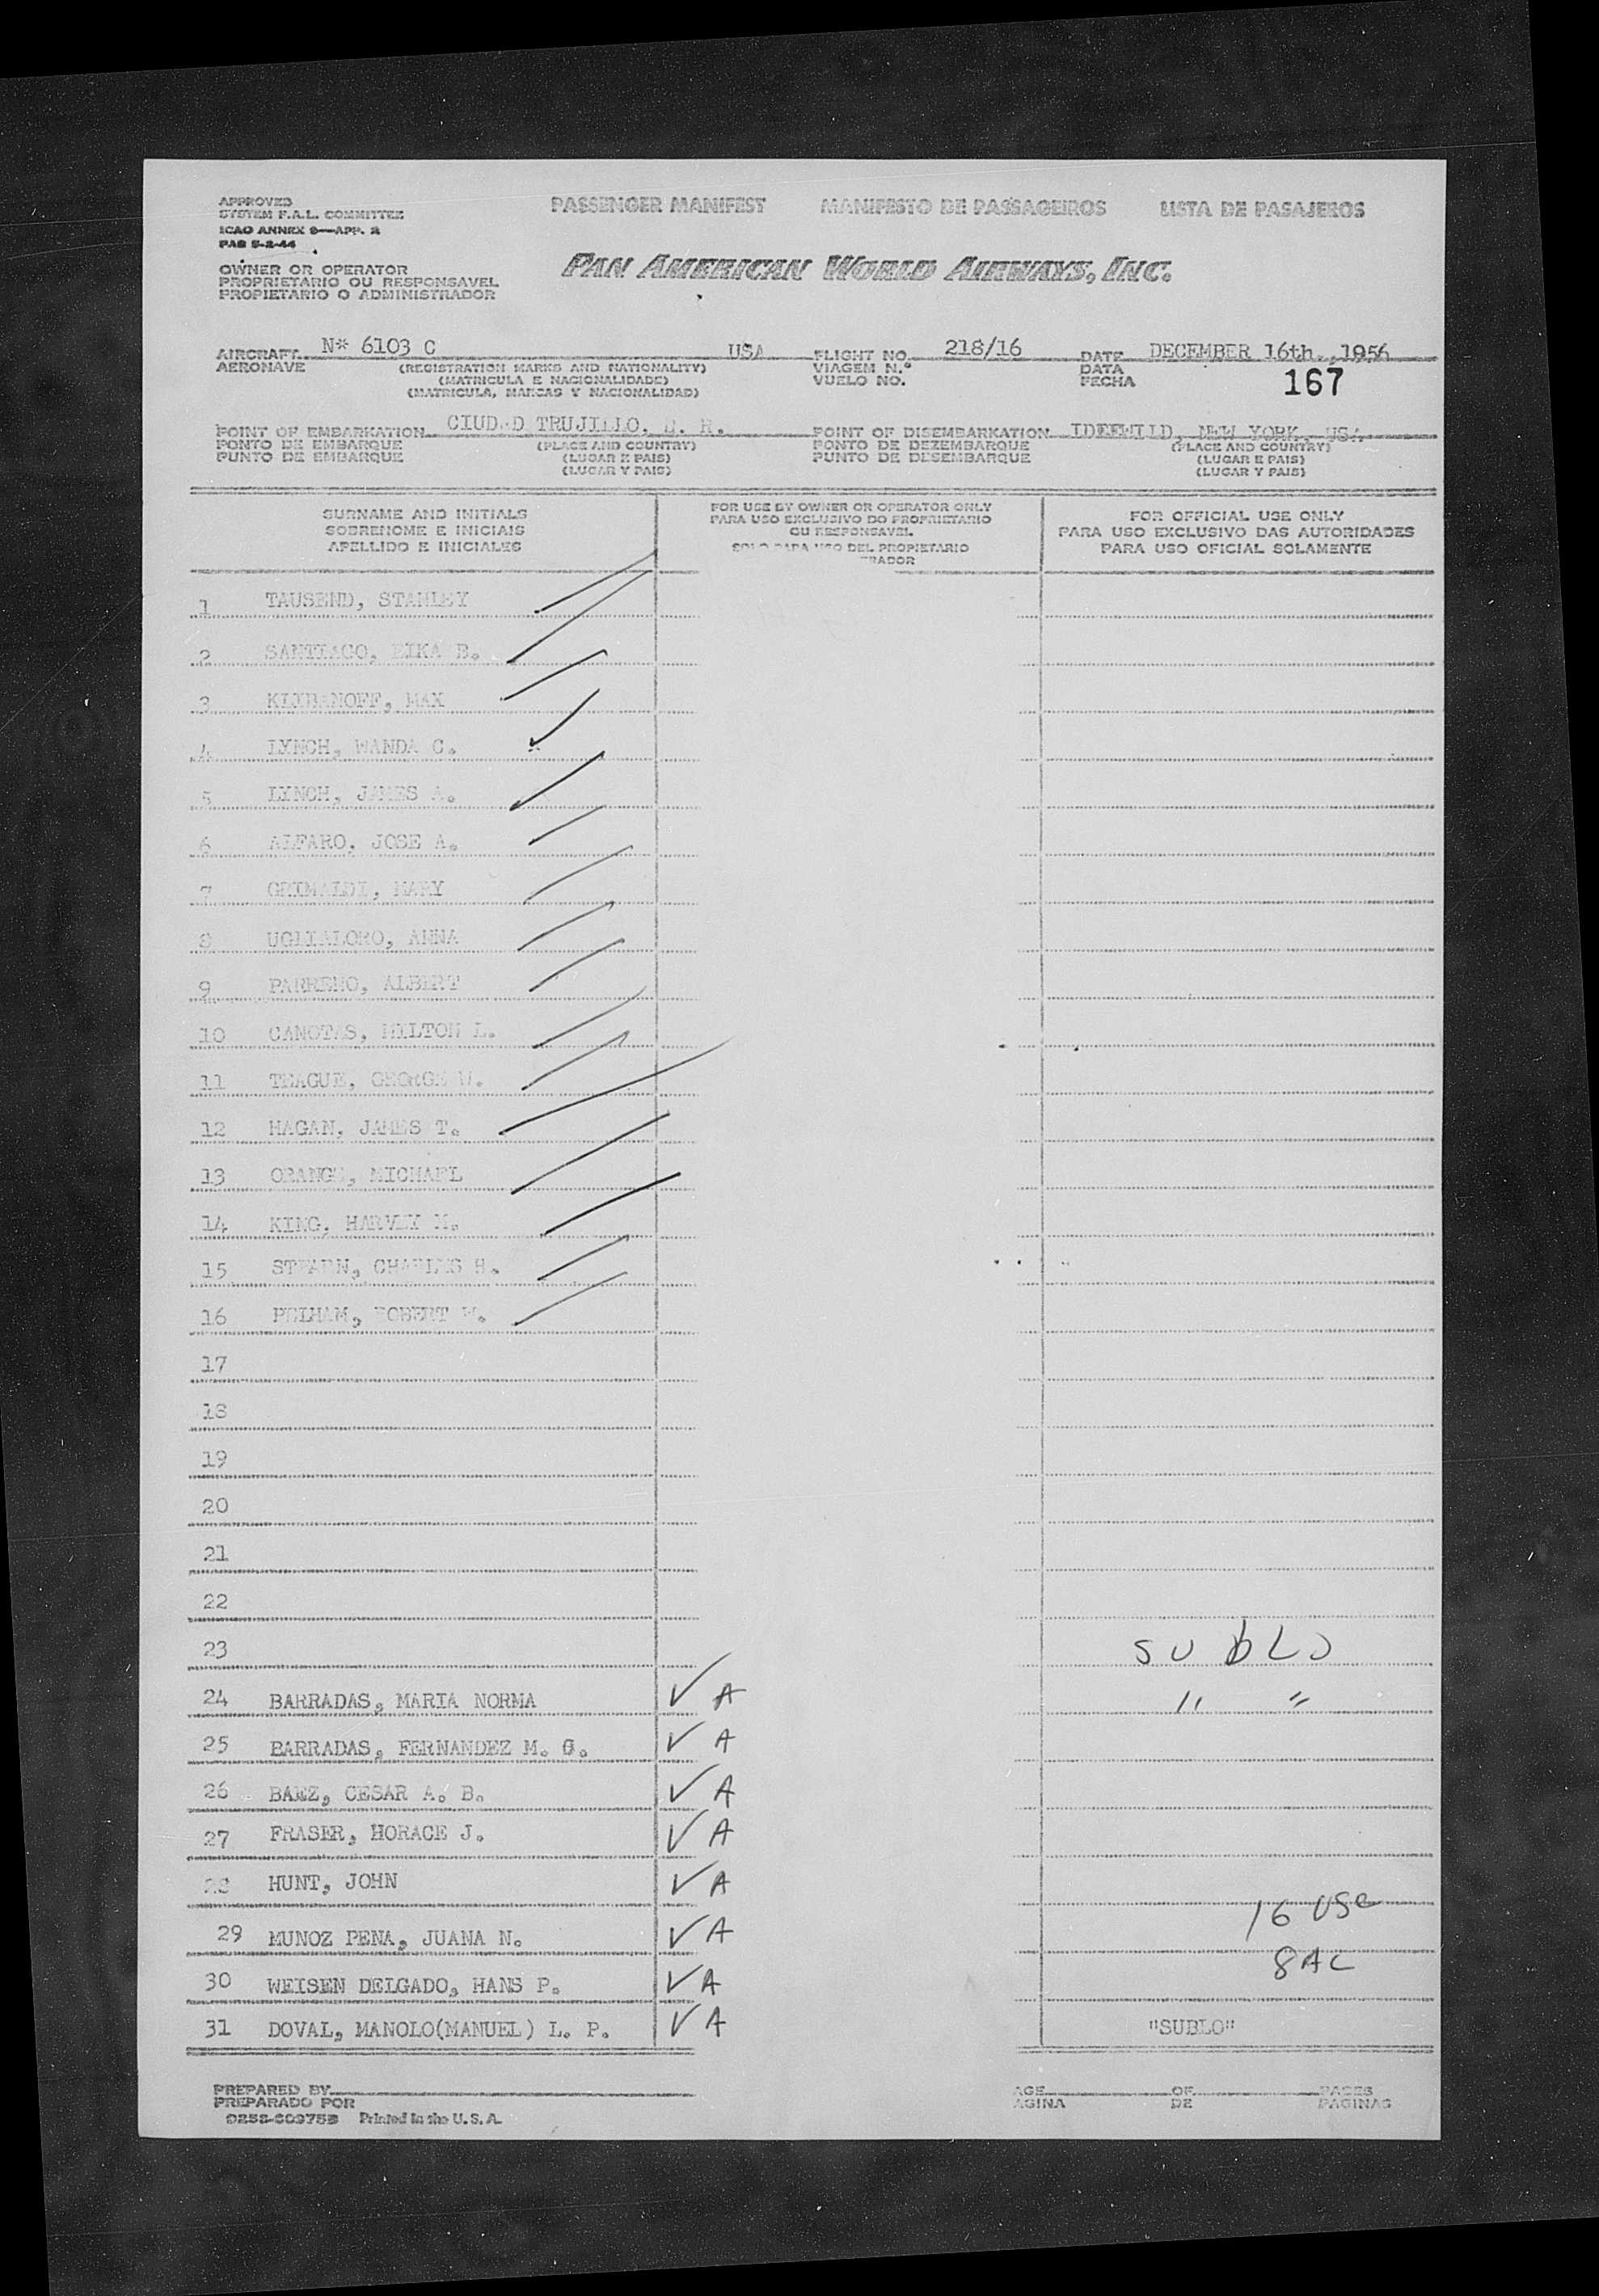 APPROVED
SYSTEM F.A.L. COMMITTEE
ICAO ANNEX 9—APP. 2
PAB 5-2-44
PASSENGER MANIFEST MANIFESTO DE PASSAGEIROS LISTA DE PASAJEROS
OWNER OR OPERATOR
PROPRIETARIO OU RESPONSAVEL
PROPIETARIO O ADMINISTRADOR
PAN AMERICAN WORLD AIRWAYS, INC.
AIRCRAFT N* 6103 C USA FLIGHT NO. 218/16 DATE DECEMBER 16th.,1956
AERONAVE (REGISTRATION MARKS AND NATIONALITY) VIAGEM N.º DATA
(MATRICULA E NACIONALIDADE) VUELO NO. FECHA 167
(MATRICULA, MARCAS Y NACIONALIDAD)
POINT OF EMBARKATION CIUDAD TRUJILLO, D. R. POINT OF DISEMBARKATION IDLEWILD, NEW YORK, USA
PONTO DE EMBARQUE (PLACE AND COUNTRY) PONTO DE DEZEMBARQUE (PLACE AND COUNTRY)
PUNTO DE EMBARQUE (LUGAR E PAIS) PUNTO DE DESEMBARQUE (LUGAR E PAIS)
(LUGAR Y PAIS) (LUGAR Y PAIS)
SURNAME AND INITIALS
SOBRENOME E INICIAIS
APELLIDO E INICIALES
FOR USE BY OWNER OR OPERATOR ONLY
PARA USO EXCLUSIVO DO PROPRIETARIO
OU RESPONSAVEL
SOLO PARA USO DEL PROPIETARIO
TRADOR
FOR OFFICIAL USE ONLY
PARA USO EXCLUSIVO DAS AUTORIDADES
PARA USO OFICIAL SOLAMENTE
1 TAUSEND, STANLEY
2 SANTIAGO, B.
3 KLIBANOFF, MAX
4 LYNCH, WANDA C.
5 LYNCH, JAMES A.
6 ALFARO, JOSE A.
7 GRIMALDI, MARY
8 UGLIALORO, ANNA
9 PARRENO, ALBERT
10 CANOTAS, MILTON L.
11 TEAGUE, GEORGE W.
12 HAGAN, JAMES T.
13 ORANGE, MICHAEL
14 KING, HARVEY M.
15 STEARN, CHARLES H.
16 PELHAM, ROBERT W.
17
18
19
20
21
22
23 SUBLO
24 BARRADAS, MARIA NORMA ✓ A " "
25 BARRADAS, FERNANDEZ M. G. ✓ A
26 BAEZ, CESAR A. B. ✓ A
27 FRASER, HORACE J. ✓ A
28 HUNT, JOHN ✓ A
16 USC
29 MUNOZ PENA, JUANA N. ✓ A
8 AC
30 WEISEN DELGADO, HANS P. ✓ A
31 DOVAL, MANOLO(MANUEL) L. P. ✓ A "SUBLO"
PREPARED BY AGE OF PAGES
PREPARADO POR AGINA DE PAGINAS
Printed in the U.S.A.